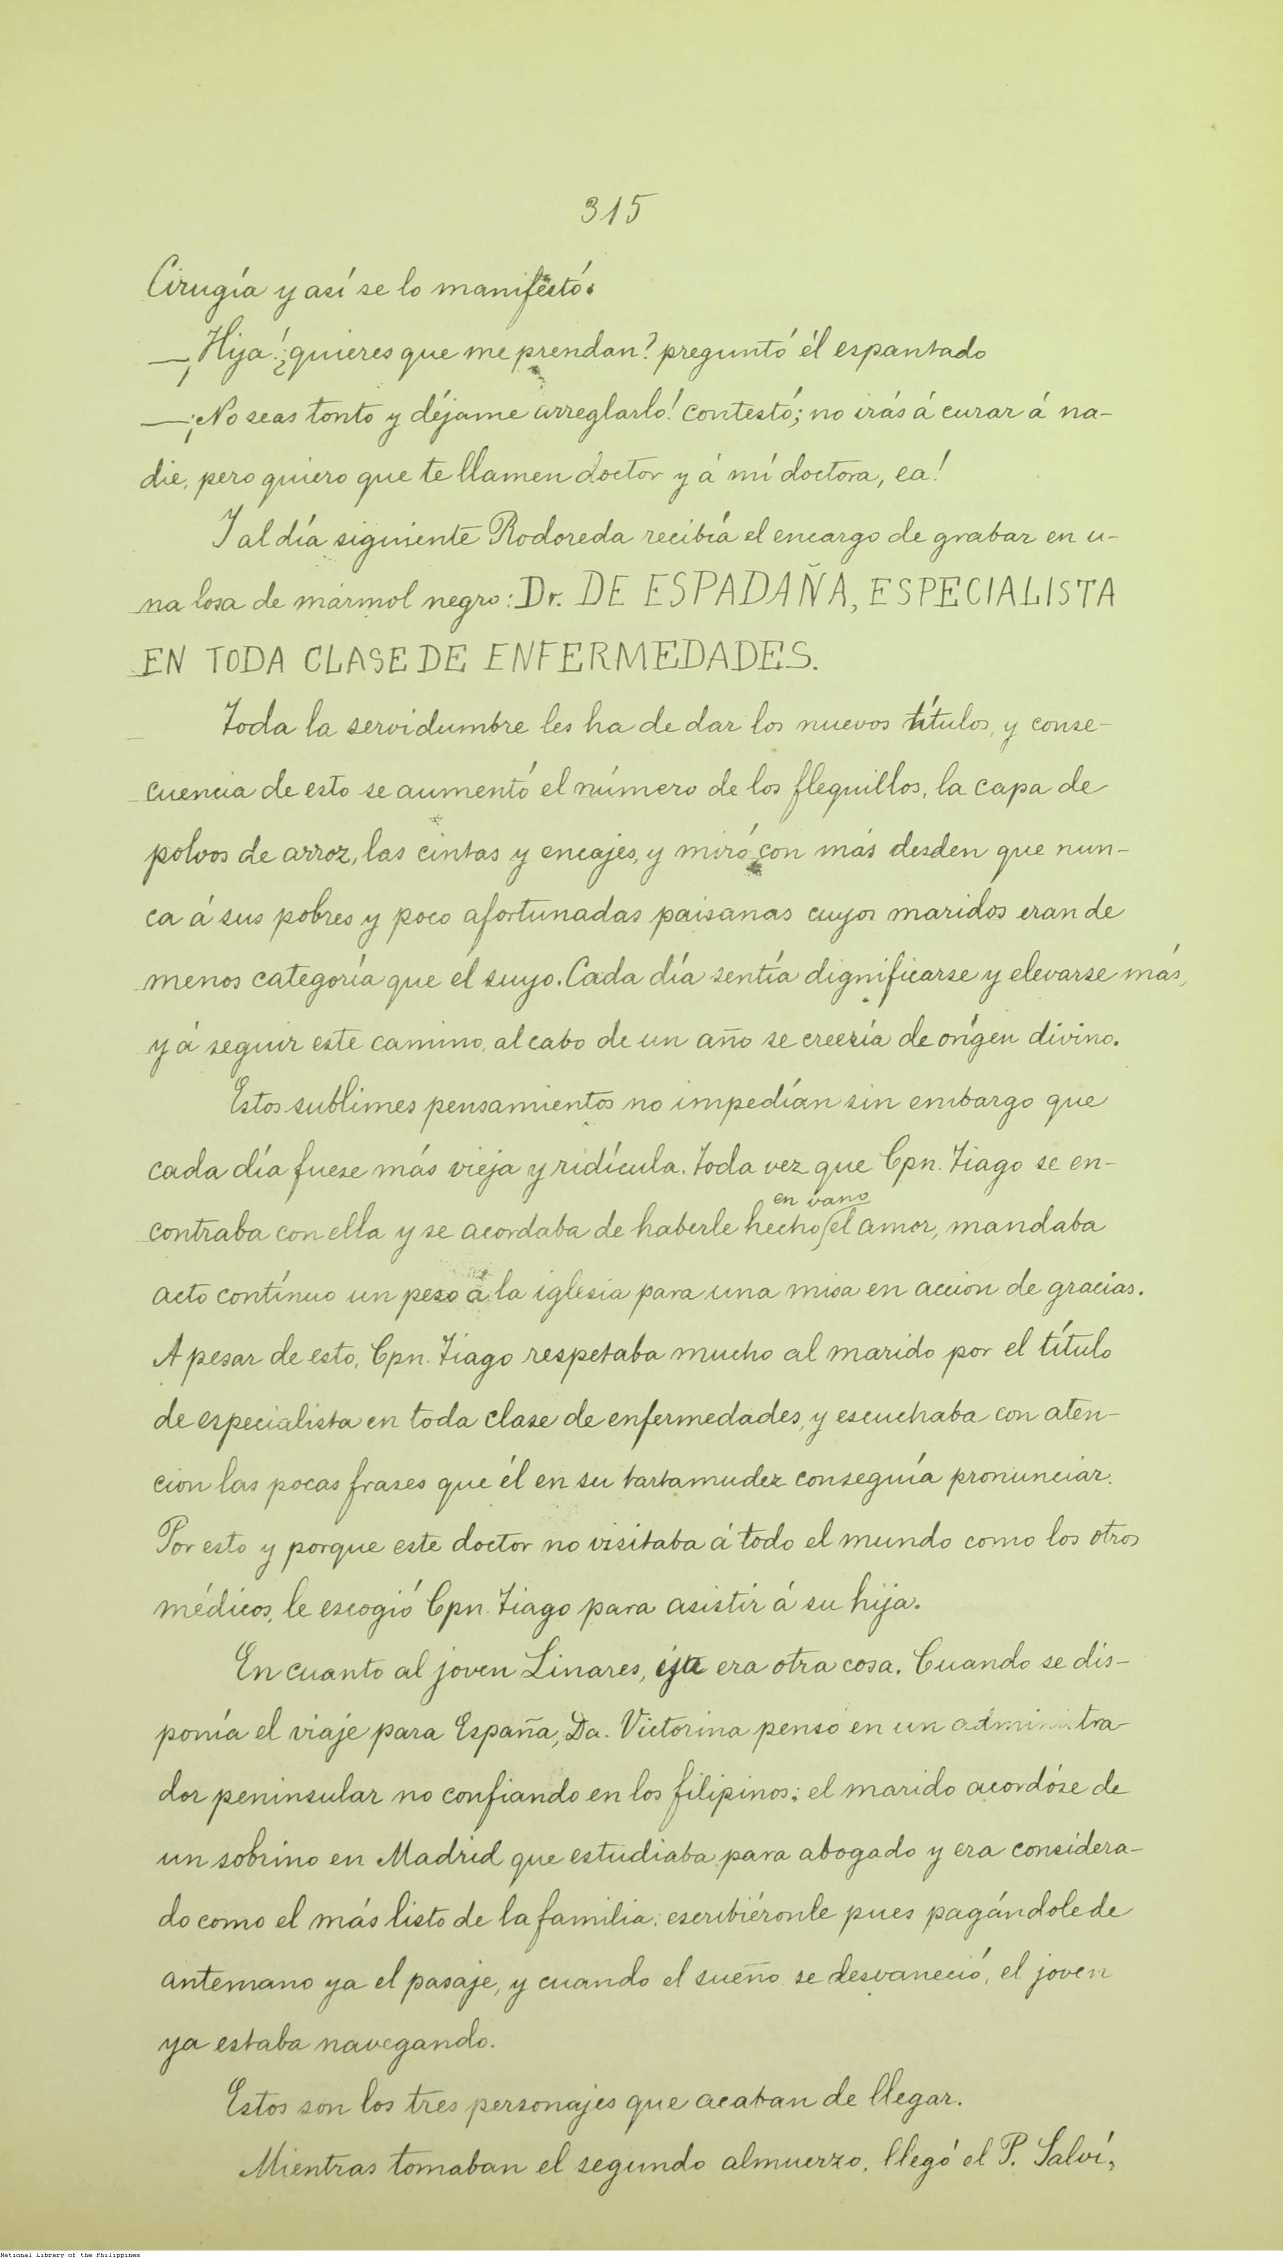 315
Cirugía y así se lo manifestó.
—¡Hija! ¿quieres que me prendan? preguntó él espantado
—¡No seas tonto y déjame arreglarlo! contestó; no irás á curar á na-
die, pero quiero que te llamen doctor y á mí doctora, ea!
Y al día siguiente Rodoreda recibía el encargo de grabar en u-
na losa de mármol negro: Dr. DE ESPADAÑA, ESPECIALISTA
EN TODA CLASE DE ENFERMEDADES.
Toda la servidumbre les ha de dar los nuevos títulos, y conse-
cuencia de esto se aumentó el número de los flequillos, la capa de
polvos de arroz, las cintas y encajes, y miró con más desden que nun-
ca á sus pobres y poco afortunadas paisanas cuyos maridos eran de
menos categoría que él suyo. Cada día sentía dignificarse y elevarse más,
y á seguir este camino, al cabo de un año se creería de orígen divino.
Estos sublimes pensamientos no impedían sin embargo que
cada día fuese más vieja y ridícula. Toda vez que Cpn. Tiago se en-
en vano
contraba con ella y se acordaba de haberle hecho el amor, mandaba
acto contínuo un peso á la iglesia para una misa en accion de gracias.
A pesar de esto, Cpn. Tiago respetaba mucho al marido por el título
de especialista en toda clase de enfermedades, y escuchaba con aten-
cion las pocas frases que él en su tartamudez conseguía pronunciar.
Por esto y porque este doctor no visitaba á todo el mundo como los otros
médicos, le escogió Cpn. Tiago para asistir á su hija.
En cuanto al joven Linares, era otra cosa. Cuando se dis-
ponía el viaje para España, Da. Victorina pensó en un administra
dor peninsular no confiando en los filipinos; el marido acordóse de
un sobrino en Madrid que estudiaba para abogado y era considera-
do como el más listo de la familia: escribiéronle pues pagándole de
antemano ya el pasaje, y cuando el sueño se desvaneció, el joven
ya estaba navegando.
Estos son los tres personajes que acaban de llegar.
Mientras tomaban el segundo almuerzo, llegó el P. Salví,
National Library of the Philippines